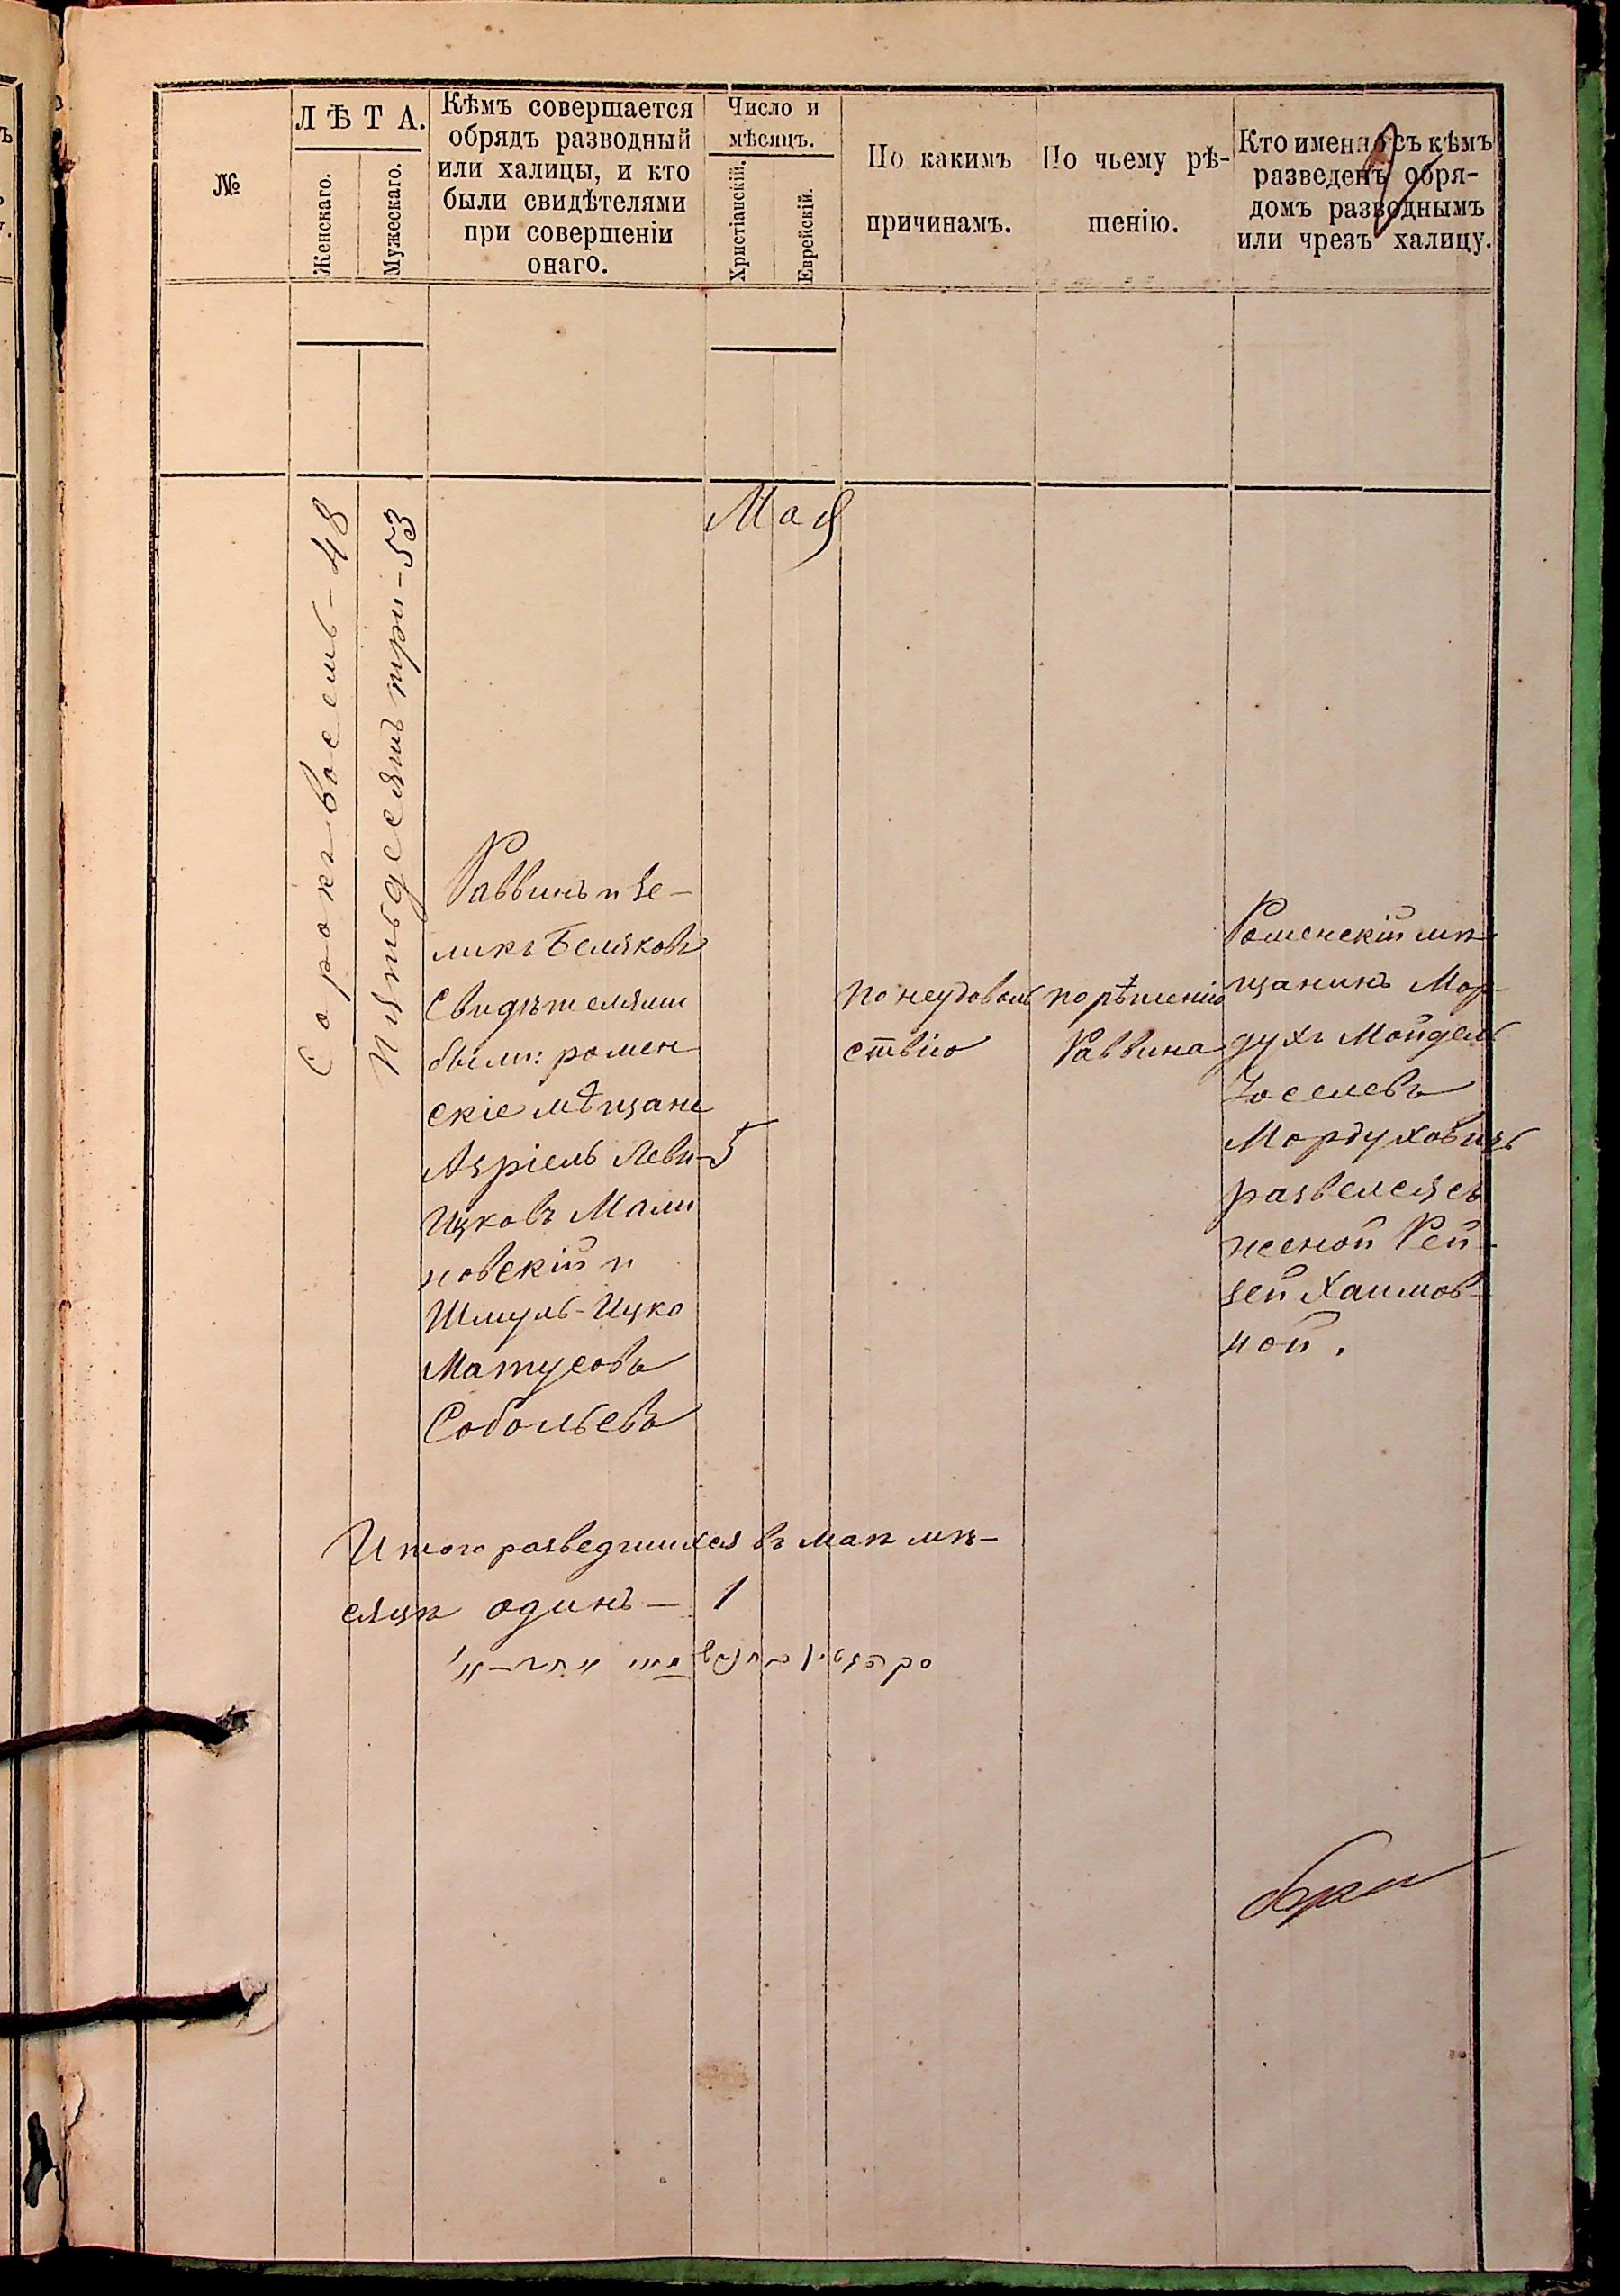 №
ЛѢТА.
Женскаго.
Мужескаго.
Кѣмъ совершается
обрядъ разводный
или халицы, и кто
были свидѣтелями
при совершеніи
онаго.
Число и
мѣсяцъ.
Христіанскій.
Еврейскій.
По какимъ
причинамъ.
По чьему рѣ-
шенію.
Кто именно съ кѣмъ
разведенъ обря-
домъ разводнымъ
или чрезъ халицу.
Сорокъ восемь - 48
Пятьдесятъ три - 53
Мая
Раввинъ и Зе-
ликъ Беляковъ
Свидѣтелями
были: ромен
скіе мѣщане
Азріель Леви-
Ицковъ Мали
новскій и
Шмуль-Ицко
Матусовъ
Собольевъ
5
По неудоволь
ствію
по рѣшенію
Раввина
Роменскій мѣ-
щанинъ Мор-
духъ Мойдель
Іоселевъ
Мордуховичъ
развелся съ
женой Рей-
зей Хаимов-
ной.
Итого разведшихся въ маѣ мѣ-
сяцѣ одинъ - 1